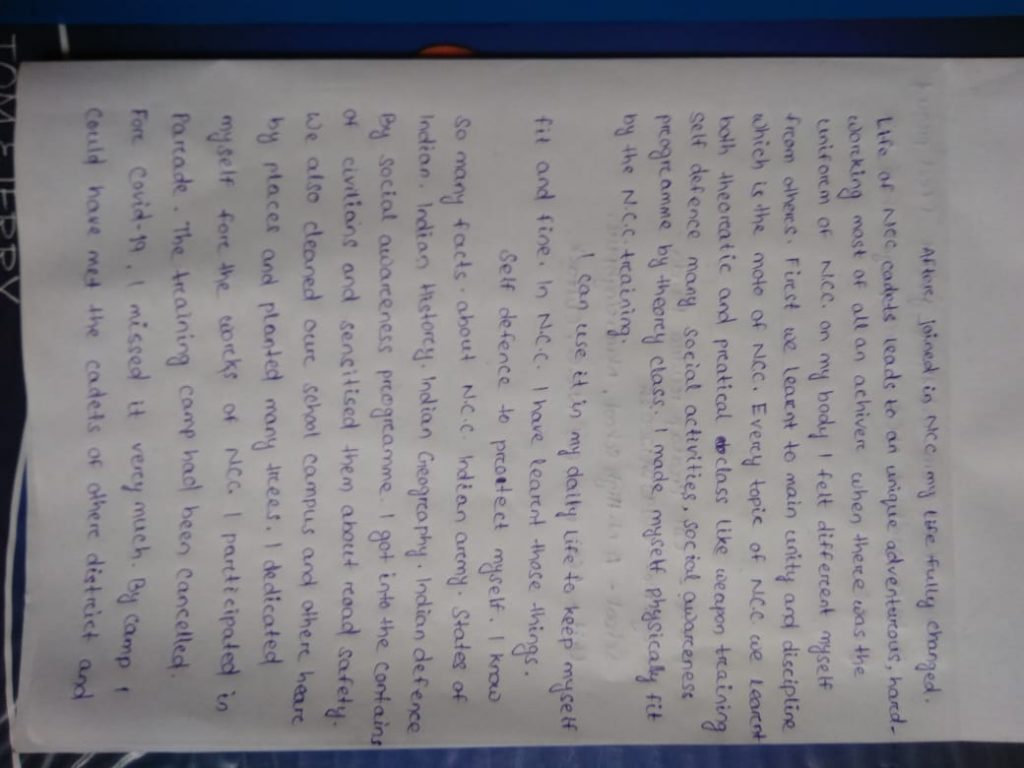 After, joined in NCC, my life fully changed.
Life of NCC cadets leads to an unique adventurous, hard-
worcking most of all an achiver. when there was the
uniforcm of NCC. on my body I felt different myself
from others. Fircst we learnt to main unity and discipline
which is the moto of NCC. Evercy topic of NCC we learcnt
both theoratic and pratical class like weapon training
Self defence many social activities, social awarceness
programme by theorcy class. I made myself physically fit
by the N.C.C. training.
I can use it in my daily life to keep myself
fit and fine. In N.C.C. I have learcnt those things.
Self defence to protect myself. I know
So many facts about N.C.C. Indian army. States of
Indian. Indian History. Indian Geography. Indian defence
By social awarceness programme. I got into the contains
of civilians and sensitised them about road safety.
We also cleaned ourc school campus and otherc hearc
by places and planted many trees. I dedicated
myself forc the worcks of NCC. I parcticipated in
Parcade. The training camp had been cancelled.
Forc Covid-19. I missed it vercy much. By camp I
Could have met the cadets of otherc district and
TOM & JERRY